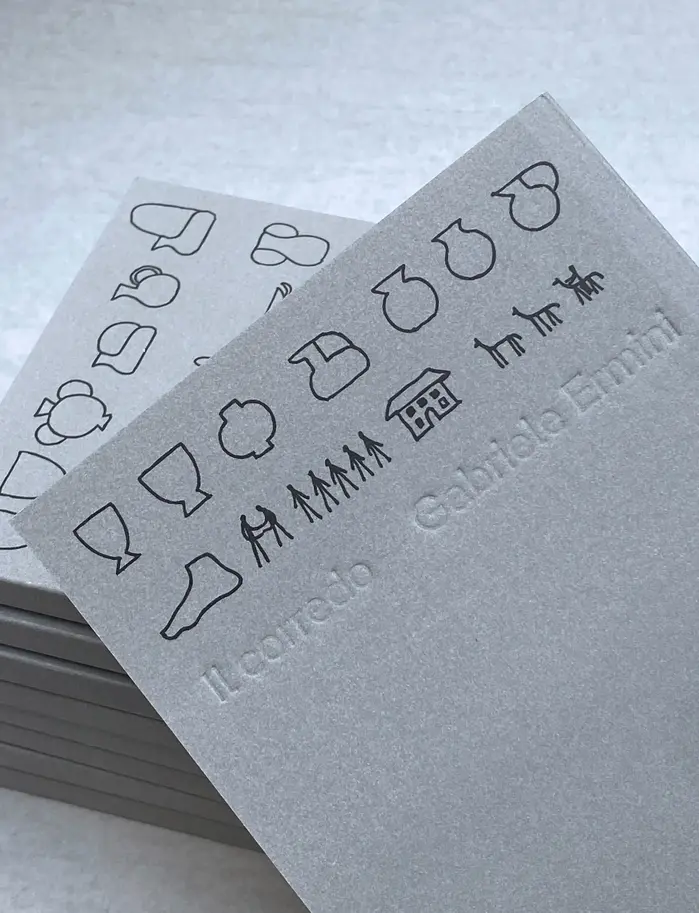 Il corredo Gabriele Ermini